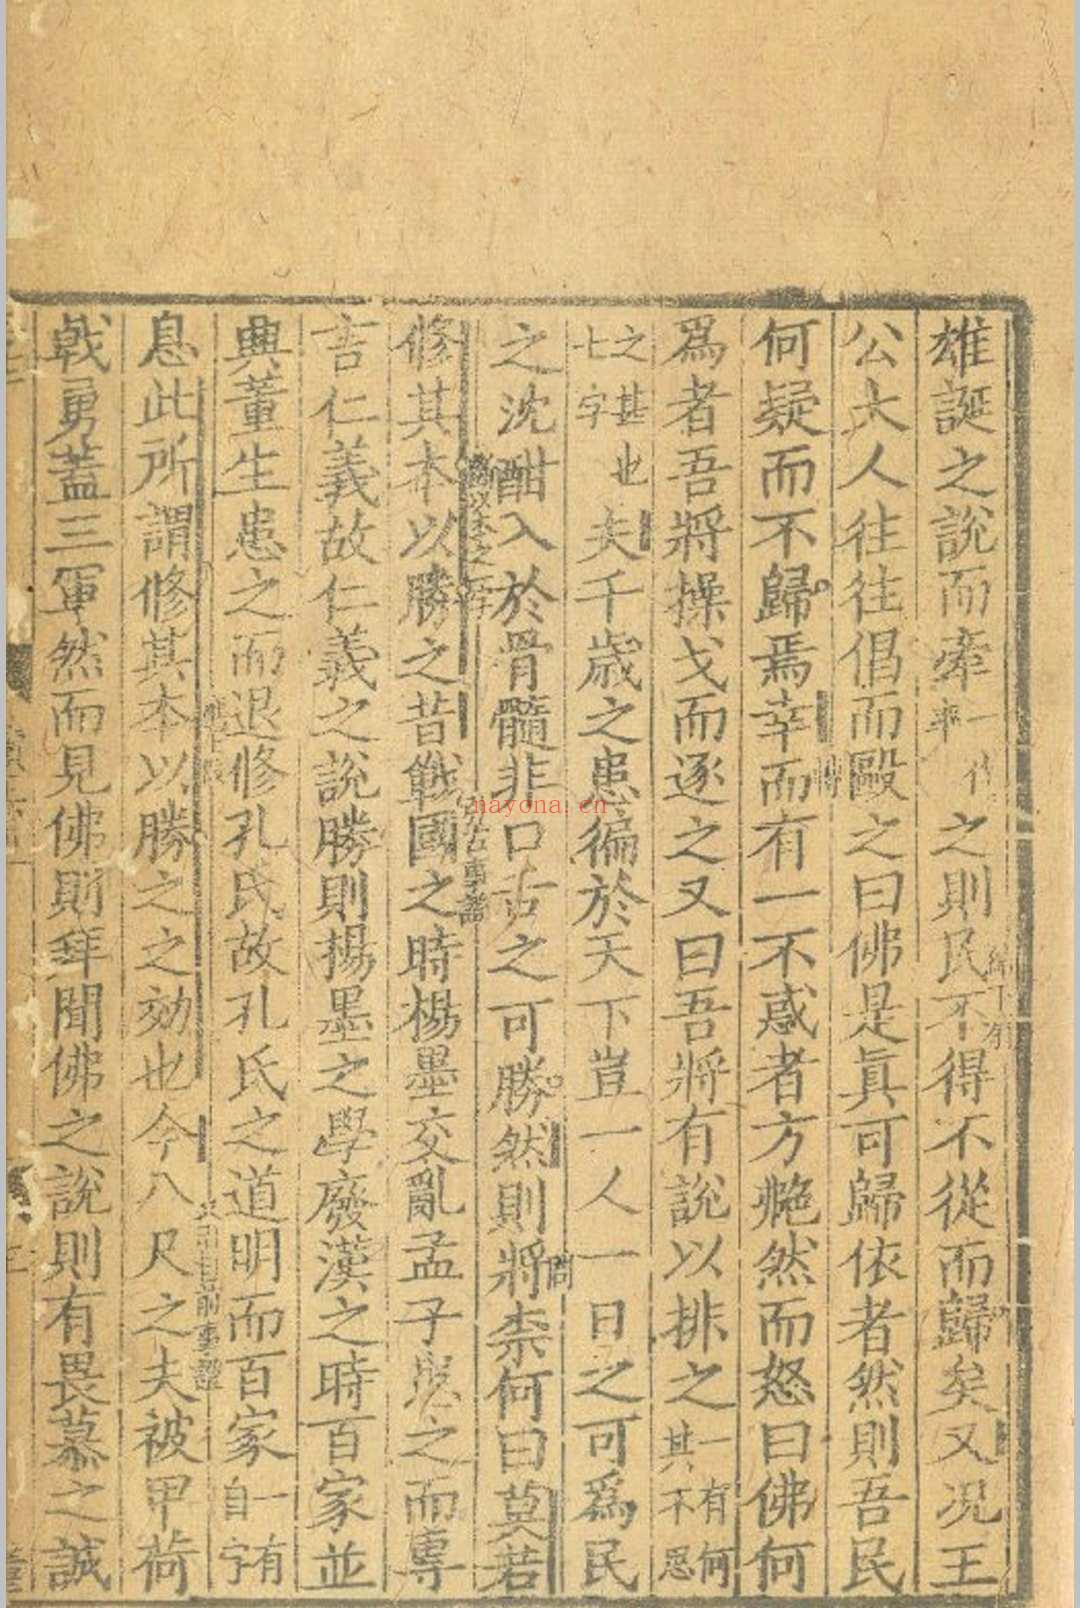 雄誕之說而牽一作率之則民不得不從而歸矣又况王
公大人往往倡而毆之曰佛是眞可歸依者然則吾民
何疑而不歸焉幸而有一不惑者方艴然而怒曰佛何
爲者吾將操戈而逐之又曰吾將有說以排之一有何其不思
之甚也七字夫千歲之患徧於天下豈一人一日之可爲民
之沈酣入於骨髓非口舌之可勝然則將柰何曰莫若
修其本以勝之昔戰國之時楊墨交亂孟子患之而專
言仁義故仁義之說勝則楊墨之學廢漢之時百家並
興董生患之而退修孔氏故孔氏之道明而百家一有自字
息此所謂修其本以勝之之効也今八尺之夫被甲荷
戟勇蓋三軍然而見佛則拜聞佛之說則有畏慕之誠
nayona.cn